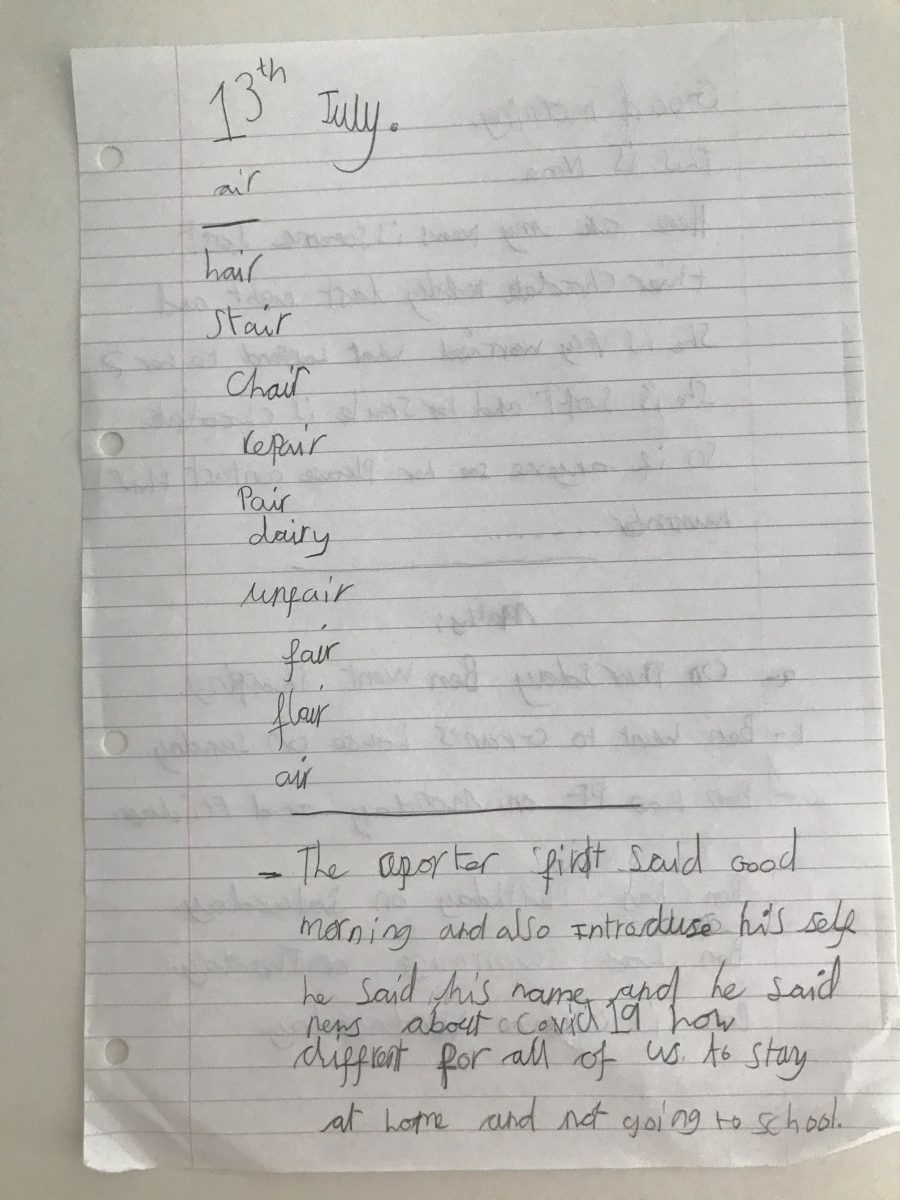 13th July.
air
hair
Stair
Chair
repair
Pair
dairy
unfair
fair
flair
air
- The reporter first said Good
morning and also introduse his self
he said his name and he said
news about Covid 19 how
diffrent for all of us to stay
at home and not going to school.